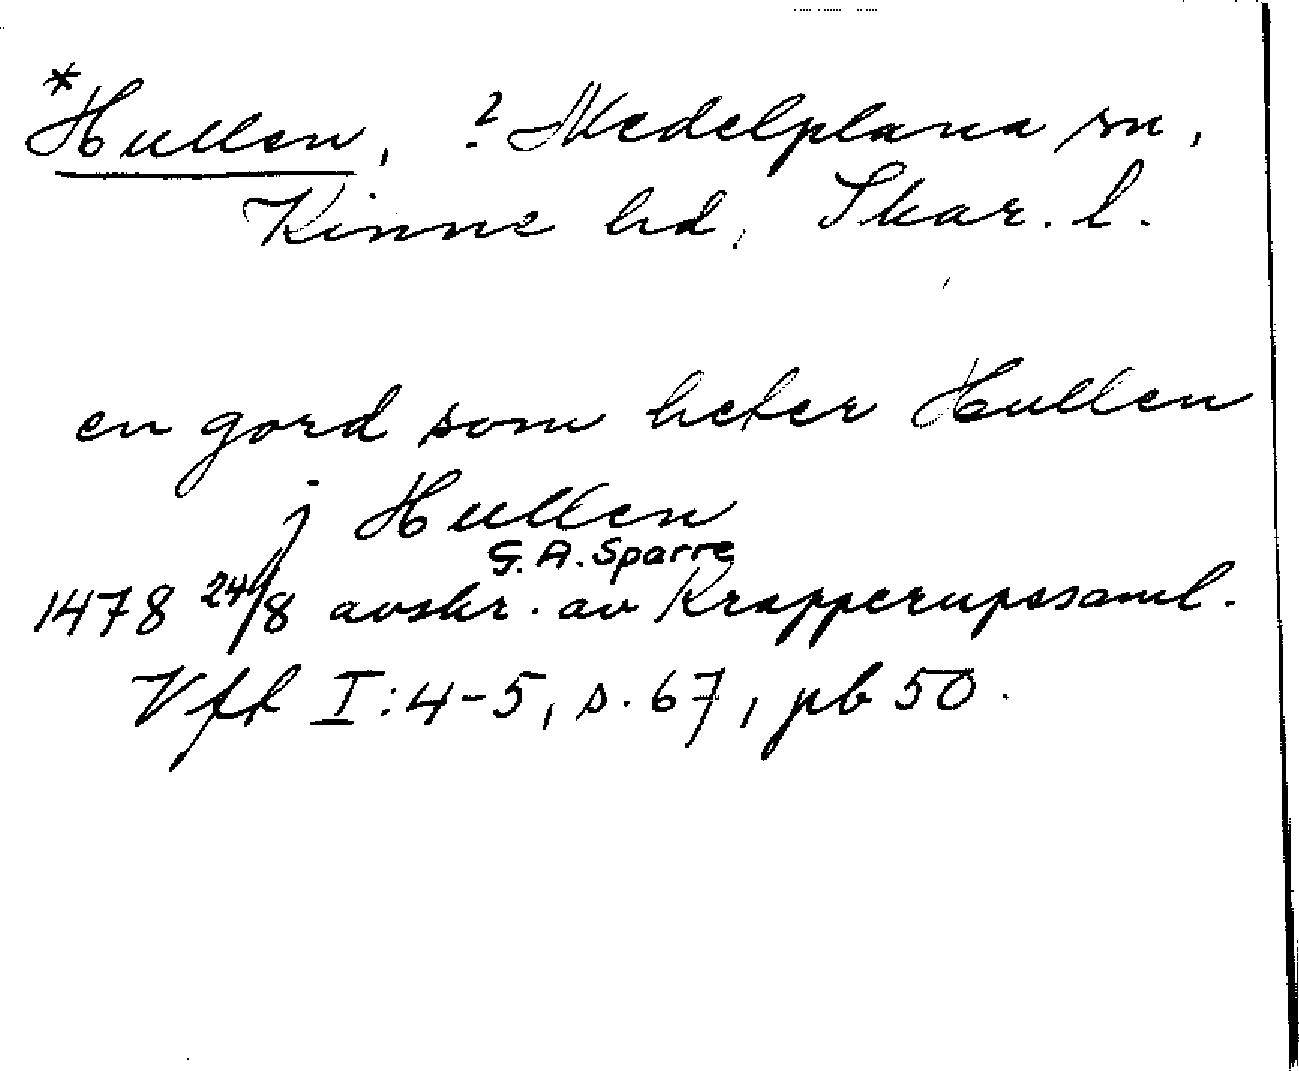 *Hullen, ? Medelplana sn,
Kinne hd, Skar. l.
en gord som heter Hullen
j Hullen
G. A. Sparre
1478 24/8 avskr. av Krapperupssaml.
Vfk I:4-5, s. 67, pb 50.